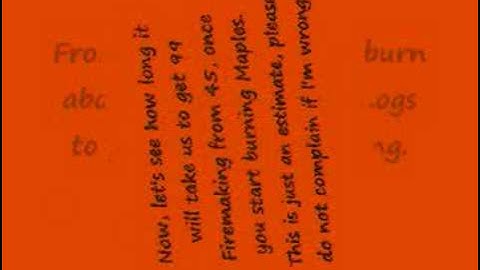 Now, let's see how long it
will take us to get 99
Firemaking from 45, once
you start burning Maples.
This is just an estimate, please
do not complain if I'm wrong
burn
to